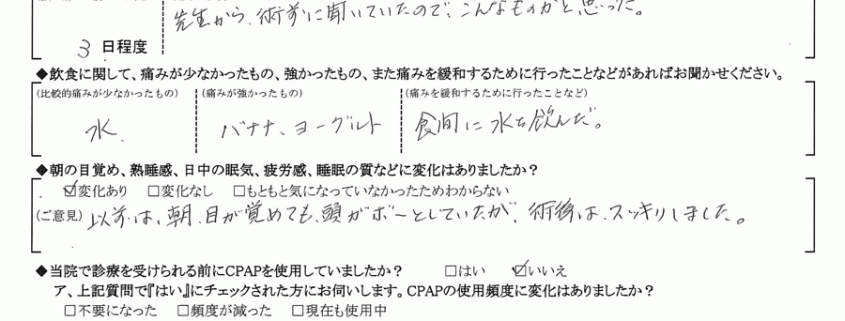 先生から、術前に聞いていたので、こんなものかと思った。
3 日程度
◆飲食に関して、痛みが少なかったもの、強かったもの、また痛みを緩和するために行ったことなどがあればお聞かせください。
(比較的痛みが少なかったもの) (痛みが強かったもの) (痛みを緩和するために行ったことなど)
水、 バナナ、ヨーグルト 食間に水を飲んだ。
◆朝の目覚め、熟睡感、日中の眠気、疲労感、睡眠の質などに変化はありましたか？
☑変化あり □変化なし □もともと気になっていなかったためわからない
(ご意見) 以前は、朝、目が覚めても、頭がボーとしていたが、術後は、スッキリしました。
◆当院で診療を受けられる前にCPAPを使用していましたか？ □はい ☑いいえ
ア、上記質問で『はい』にチェックされた方にお伺いします。CPAPの使用頻度に変化はありましたか？
□不要になった □頻度が減った □現在も使用中